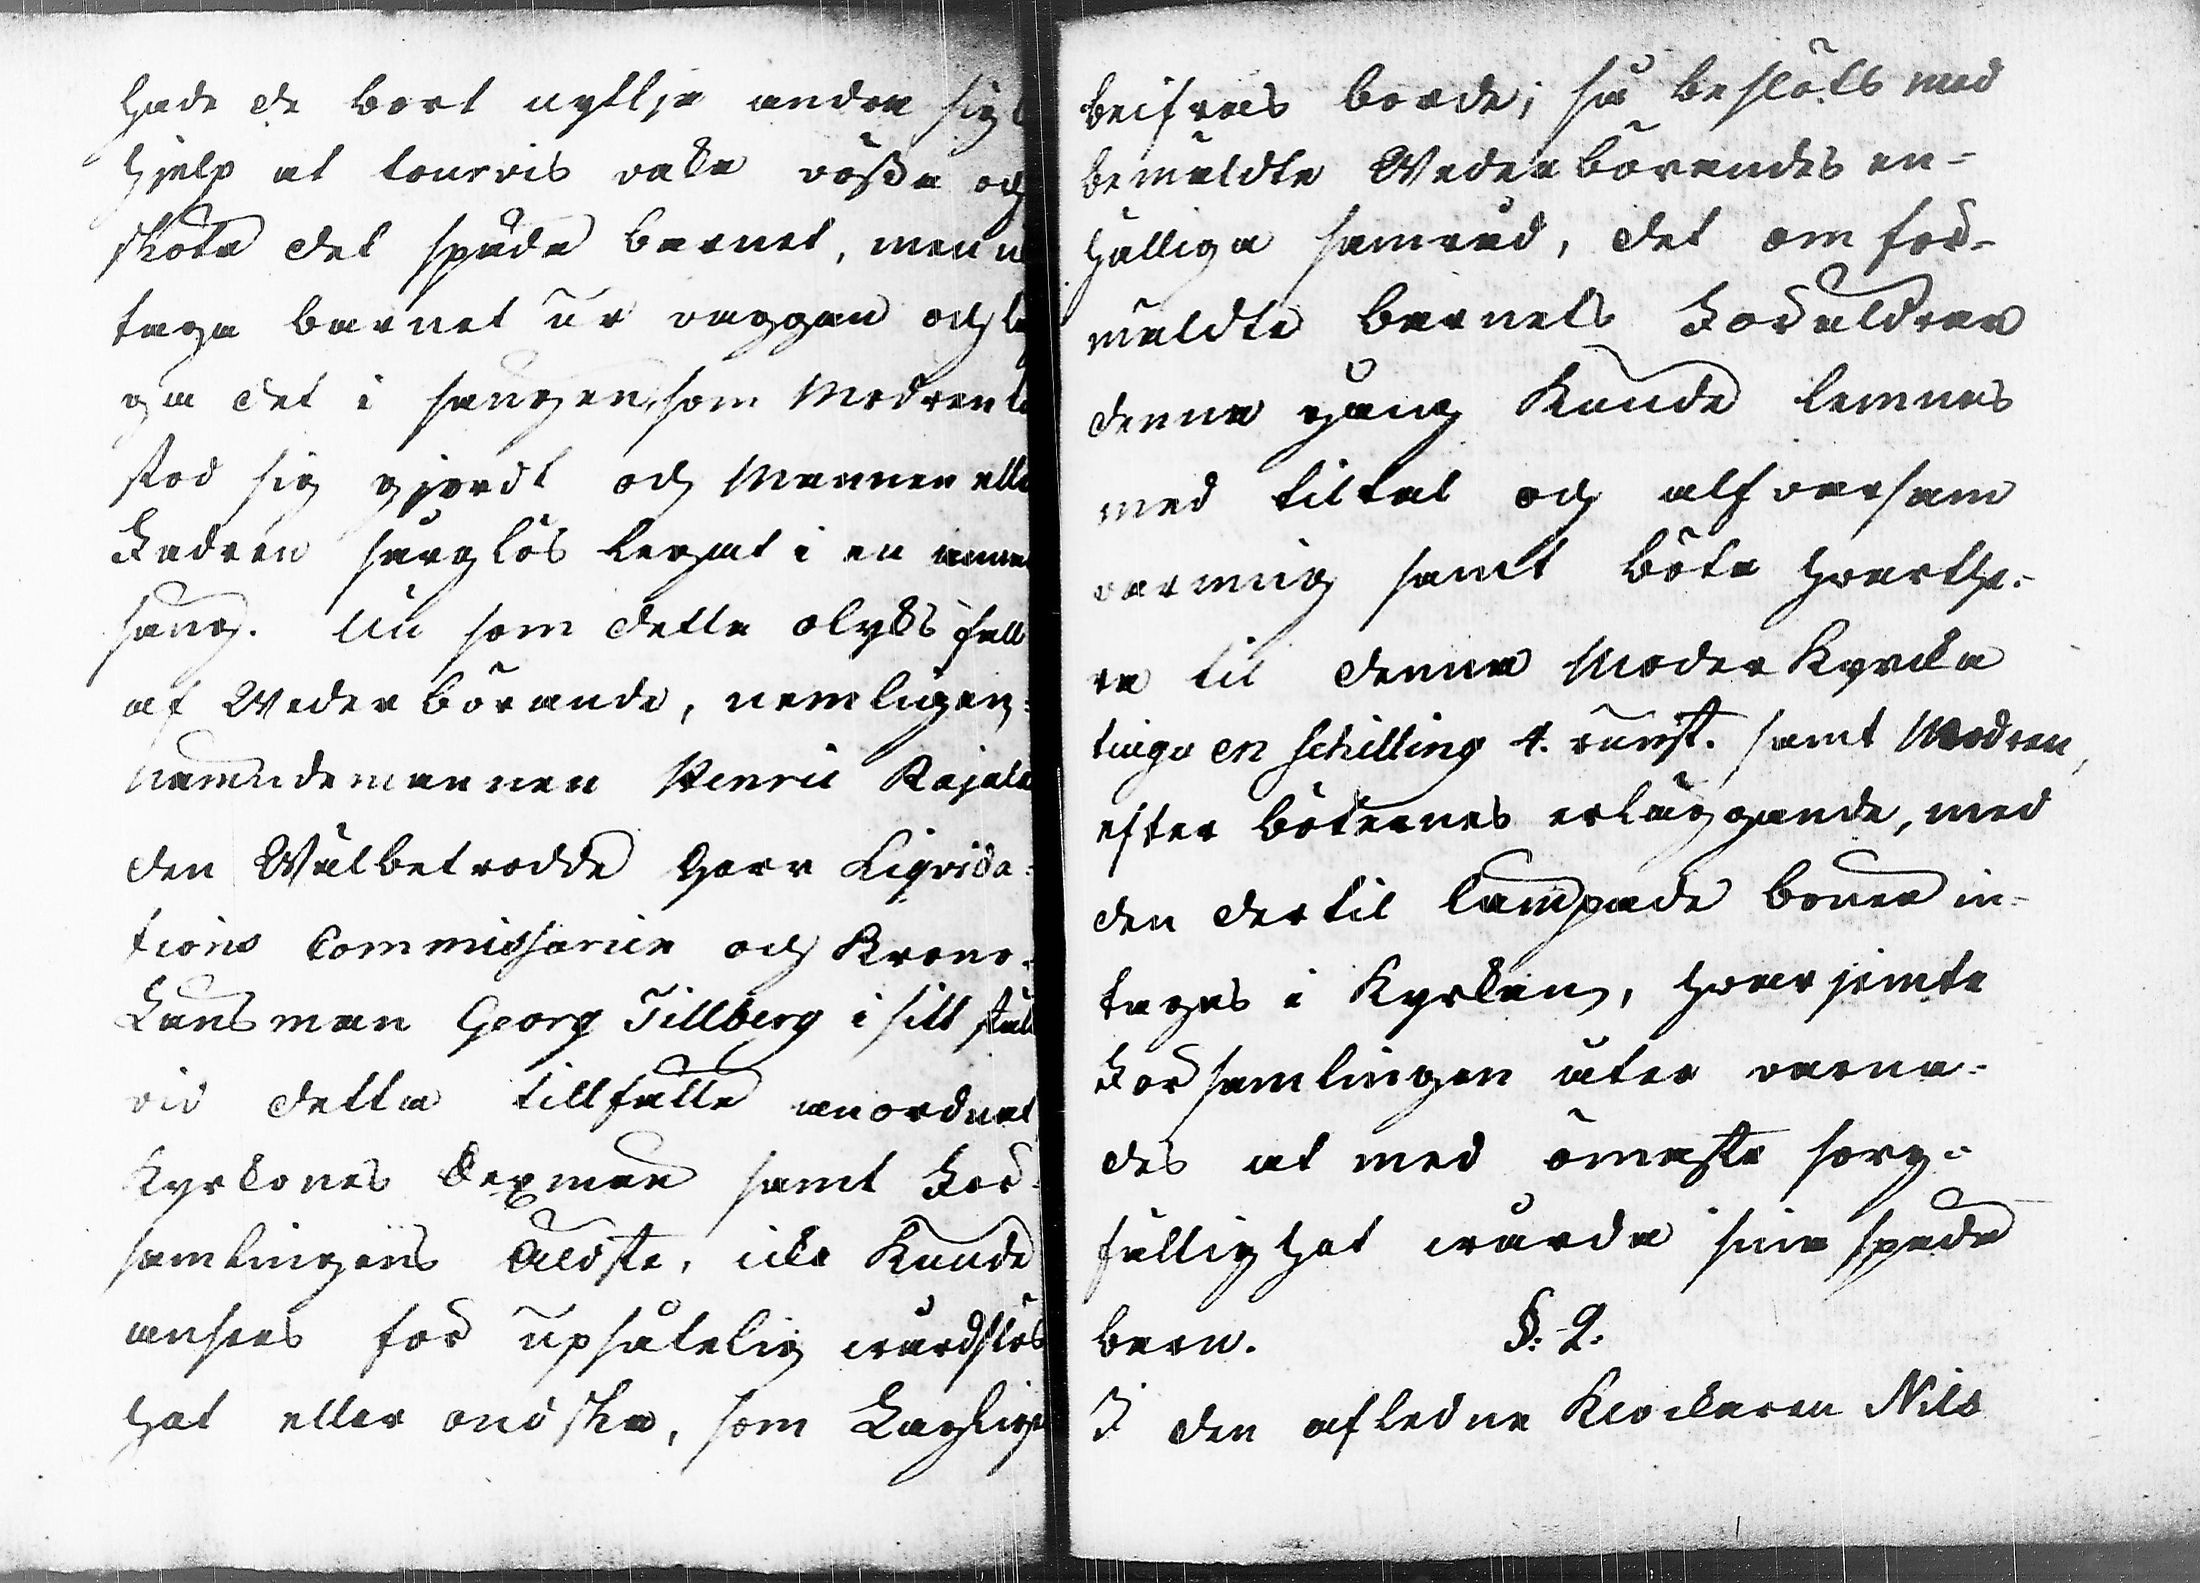 hade de bort nyttja andra sig
hjelp at tourvis vaka vässa och
sköta det späda barnet, men
taga barnet ur vaggan och
ga det i sängen, som Modren
stod sig gjordt och Mannen eller
Fadren sårglös legat i en annan
säng. Nu som detta olyks fall
af Wederbörande, nemligen
Nämndemannen Henric Rajala
den Wälbetrodde Herr Liqvida-
tions Commissarien och Krono-
Länsman Georg Tillberg i sitt ställ
vid detta tillfälle anordnat
Kyrkones Sexmän samt För-
samlingens Äldste, icke Kunde
anses för upsåtelig wårdslös
het eller ondska, som Lagligen
beifras borde; så beslöts med
bemäldte Wederbörandes en-
hälliga samråd, det omför-
mäldte barnets Föräldrar
denna gång Kunde lemnas
med tiltal och alfvarsam
varning samt böta hvarthe-
ra til denna Moder Kyrcka
tingo en schilling 4. runst. samt Modren,
efter böternes erläggande, med
den dertil lämpade bönen in-
tages i Kyrkan, hvarjemte
Församlingen åter varna-
des at med ömaste sorg-
fällighet wårda sina späda
barn. §. 2.
I den aflednа Klockaren Nils